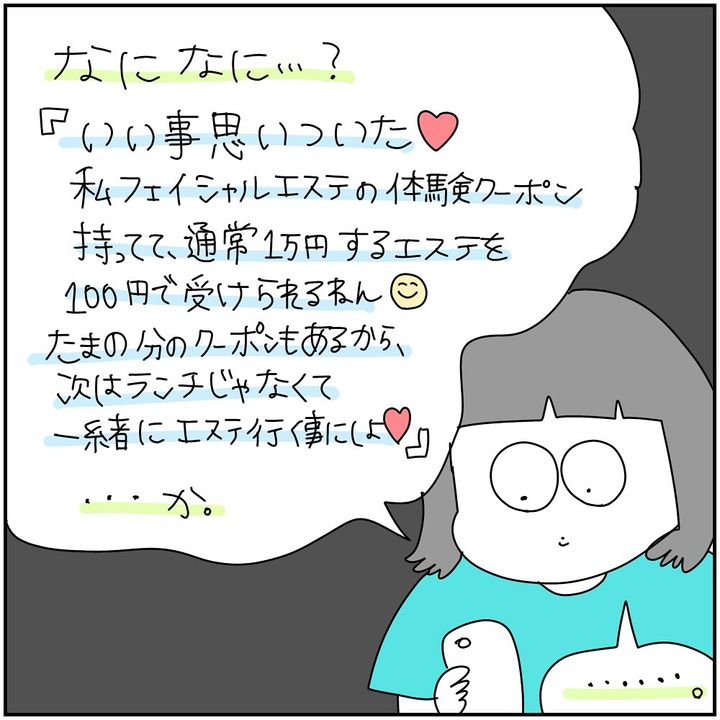 なになに…？
『いい事思いついた♥
私フェイシャルエステの体験クーポン
持ってて、通常1万円するエステを
100円で受けられるねん😊
たまの分のクーポンもあるから、
次はランチじゃなくて
一緒にエステ行く事にしよ♥』
・・・・か。
・・・・・・。